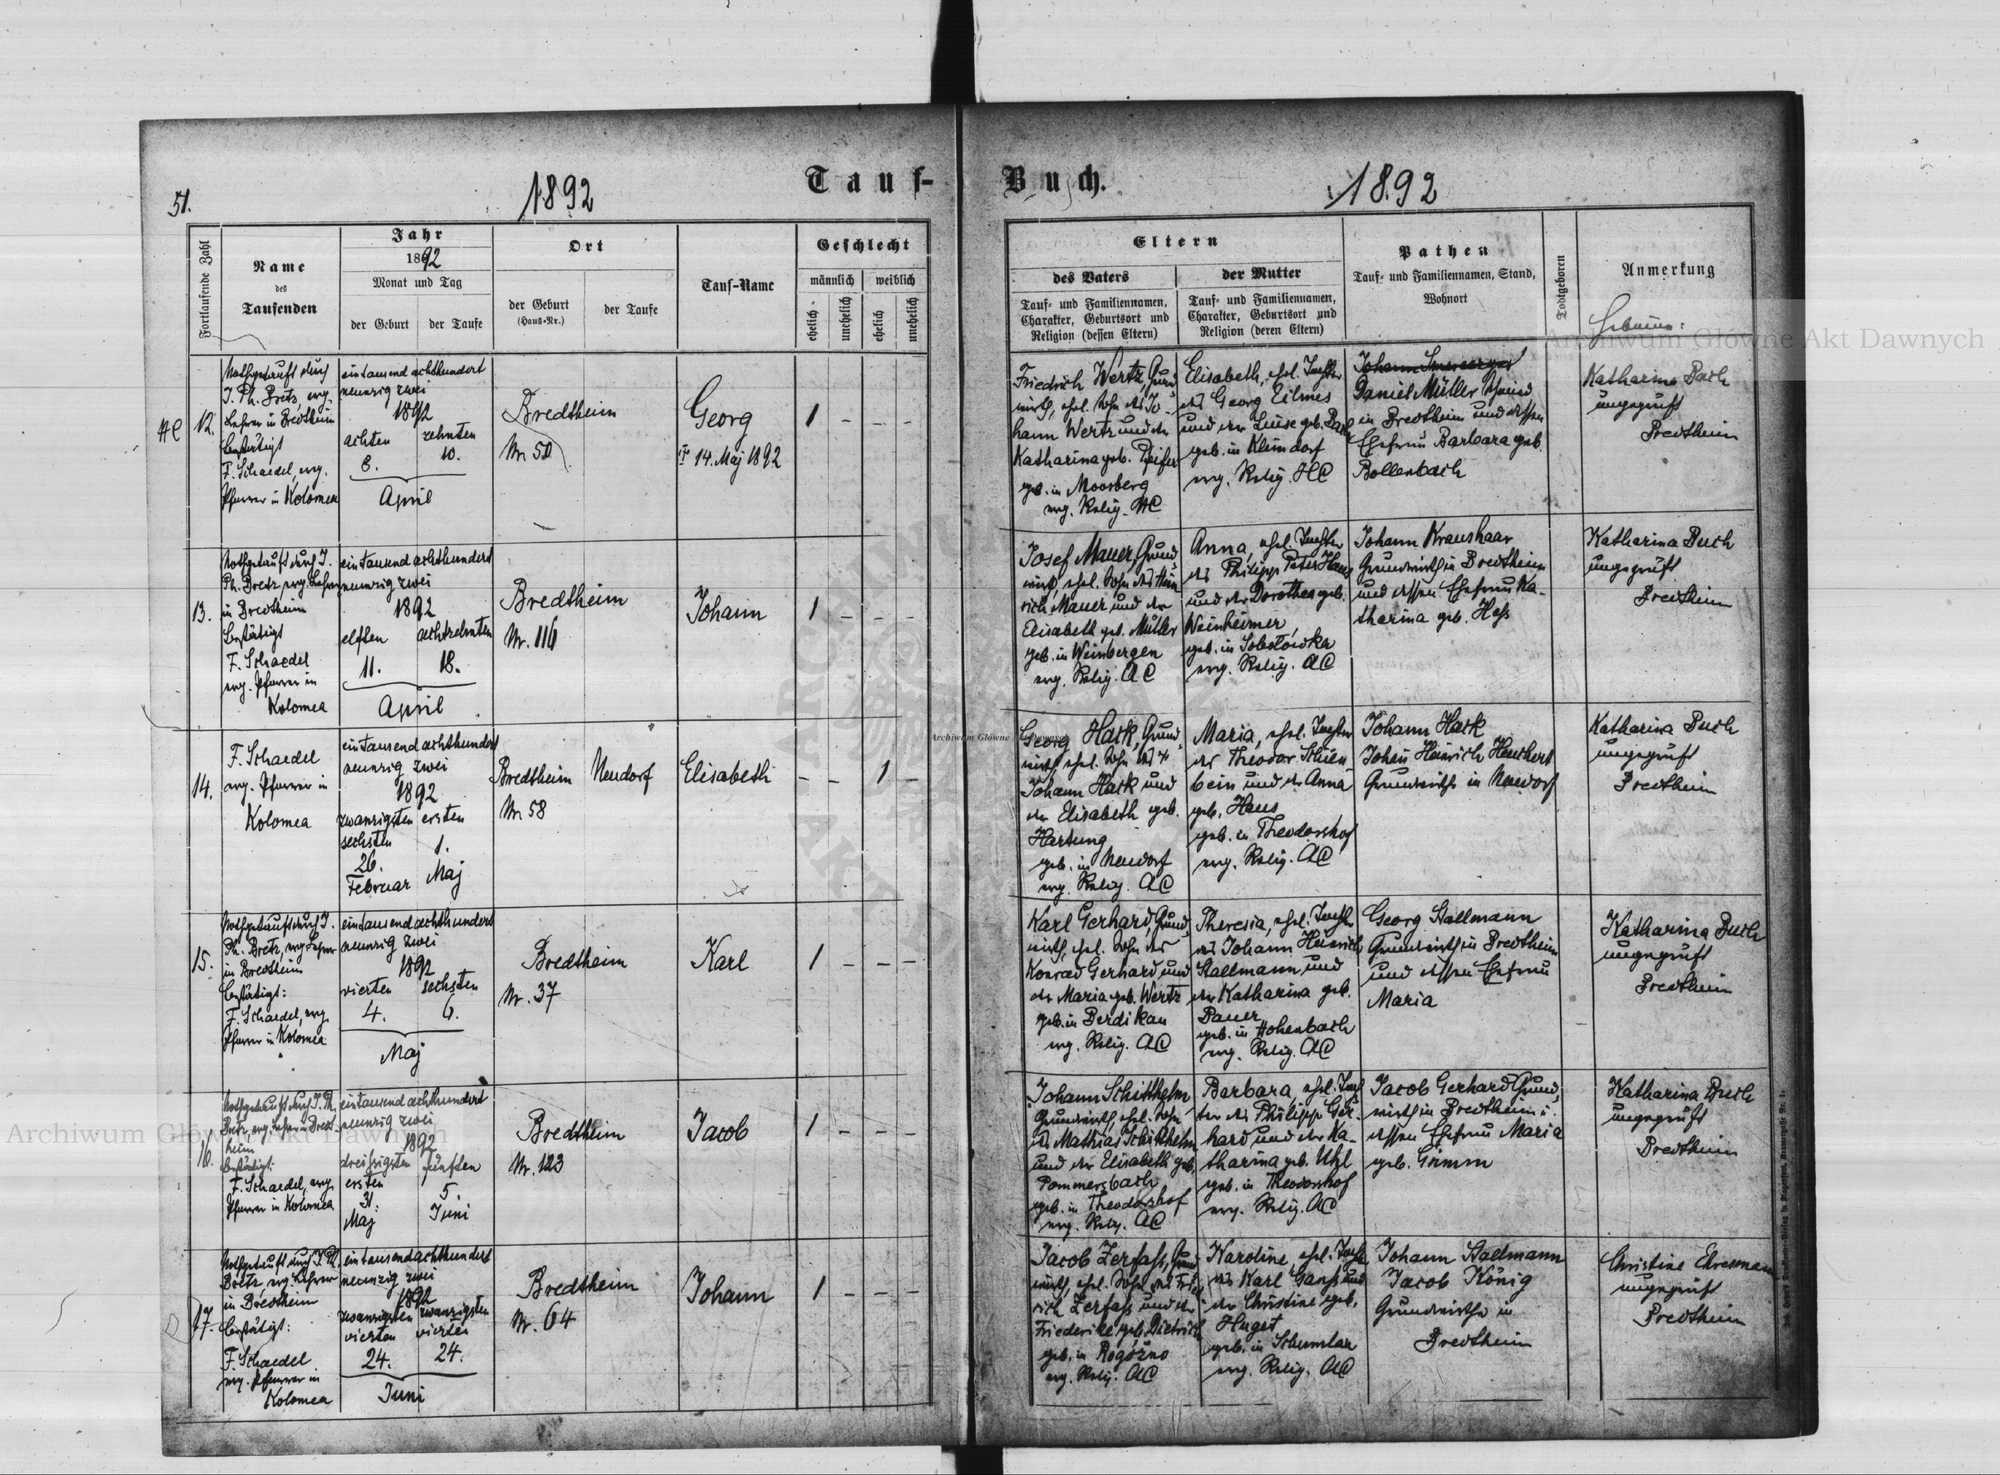 51.
1892
Tauf-
Buch.
1892
Fortlaufende Zahl
Name
des
Taufenden
Jahr
1892
Monat und Tag
der Geburt
der Taufe
Ort
der Geburt
(Haus-Nr.)
der Taufe
Tauf-Name
Geschlecht
männlich
weiblich
ehelich
unehelich
ehelich
unehelich
Eltern
des Vaters
Tauf- und Familiennamen,
Charakter, Geburtsort und
Religion (dessen Eltern)
der Mutter
Tauf- und Familiennamen,
Charakter, Geburtsort und
Religion (deren Eltern)
Pathen
Tauf- und Familiennamen, Stand,
Wohnort
Todtgeboren
Anmerkung
Hebamme:
HC
12.
Nothgetauft durch
J. Ph. Bretz, evg.
Lehrer in Bredtheim
bestätigt
F. Schaedel, evg.
Pfarrer in Kolomea
eintausend achthundert
neunzig zwei
1892
achten zehnten
8. 10.
April
Bredtheim
Nr. 50
Georg
14. Maj 1892
1 - - -
Friedrich Wertz, Grund
wirth, ehel. Sohn des Jo-
hann Wertz und der
Katharina geb. Pfeifer
geb. in Moosberg
evg. Relig. HC
Elisabeth, ehel. Tochter
des Georg Eilmes
und der Luise geb.
geb. in Kleindorf
evg. Relig. HC
Johann
Daniel Müller
in Bredtheim und dessen
Ehefrau Barbara geb.
Bollenbach
Katharina Buch
ungeprüft
Bredtheim
13.
Nothgetauft durch J.
Ph. Bretz, evg. Lehrer
in Bredtheim
bestätigt
F. Schaedel
evg. Pfarrer in
Kolomea
eintausend achthundert
neunzig zwei
1892
elften achtzehnten
11. 18.
April
Bredtheim
Nr. 116
Johann
1 - - -
Josef Mauer, Grund
wirth, ehel. Sohn des Hein
rich Mauer und der
Elisabeth geb. Müller
geb. in Weinbergen
evg. Relig. AC
Anna, ehel. Tochter
des Philipp Peter Haas
und der Dorothea geb.
Weinheimer,
geb. in Sobotowka
evg. Relig. AC
Johann Kraushaar
Grundwirth in Bredtheim
und dessen Ehefrau Ka-
tharina geb. Hess
Katharina Buch
ungeprüft
Bredtheim
14.
F. Schaedel
evg. Pfarrer in
Kolomea
eintausend achthundert
neunzig zwei
1892
zwanzigsten ersten
sechsten 1.
26.
Februar Maj
Bredtheim
Nr. 58
Neudorf
Elisabeth
- - 1 -
Georg Hark, Grund,
wirth ehel. Sohn des
Johann Hark und
der Elisabeth geb.
Hartung
geb. in Neudorf
evg. Relig. AC
Maria, ehel. Tochter
des Theodor Schien
bein und der Anna
geb. Haus
geb. in Theodorshof
evg. Relig. AC
Johann Hark
Johan Heinrich Henkert
Grundwirthe in Neudorf
Katharina Buch
ungeprüft
Bredtheim
15.
Nothgetauft durch J.
Ph. Bretz, evg Lehrer
in Bredtheim
bestätigt:
F. Schaedel, evg.
Pfarrer in Kolomea
eintausend achthundert
neunzig zwei
1892
vierten sechsten
4. 6.
Maj
Bredtheim
Nr. 37
Karl
1 - - -
Karl Gerhard, Grund,
wirth, ehel. Sohn des
Konrad Gerhard, und
der Maria geb. Wertz
geb. in Berdikau
evg. Relig. AC
Theresia, ehel. Tocht
des Johann Heinrich
Stallmann, und
der Katharina geb.
Bauer
geb. in Hohenbach
evg. Relig. AC
Georg Stallmann
Grundwirth in Bredtheim
und dessen Ehefrau
Maria
Katharina Buch
ungeprüft
Bredtheim
16.
Nothgetauft durch J. Ph.
Bretz evg. Lehrer in Bredt-
heim
bestätigt:
F. Schaedel, evg.
Pfarrer in Kolomea
eintausend achthundert
neunzig zwei
1892
dreissigsten fünften
ersten
31. 5.
Maj Juni
Bredtheim
Nr. 123
Jacob
1 - - -
Johann Schitthelm
Grundwirth, ehel. Sohn
des Mathias Schitthelm
und der Elisabeth geb.
Pommersbach
geb. in Theodorshof
evg. Relig. AC
Barbara, ehel. Toch
ter des Philipp Ger-
hard und der Ka-
tharina geb. Uhl
geb. in Theodorshof
evg. Relig. AC
Jacob Gerhard Grund,
wirth in Bredtheim u.
dessen Ehefrau Maria
geb. Grimm
Katharina Buch
ungeprüft
Bredtheim
17.
Nothgetauft durch J. Ph.
Bretz, evg. Lehrer
in Bredtheim
bestätigt:
F. Schaedel
evg. Pfarrer in
Kolomea
eintausend achthundert
neunzig zwei
1892
zwanzigsten zwanzigsten
vierten vierten
24. 24.
Juni
Bredtheim
Nr. 64
Johann
1 - - -
Jacob Zerfass, Grund
wirth, ehel. Sohn des Fried
rich Zerfass und der
Friederike geb. Dietrich
geb. in Rogózno
evg. Relig. AC
Karoline, ehel. Tocht
des Karl Ganss und
der Christine geb.
Huget
geb. in Schumlau
evg. Relig. AC
Johann Stallmann
Jacob König
Grundwirthe in
Bredtheim
Christine Ehresmann
ungeprüft
Bredtheim
Archiwum Główne Akt Dawnych
Archiwum Główne Akt Dawnych
Archiwum Główne Akt Dawnych